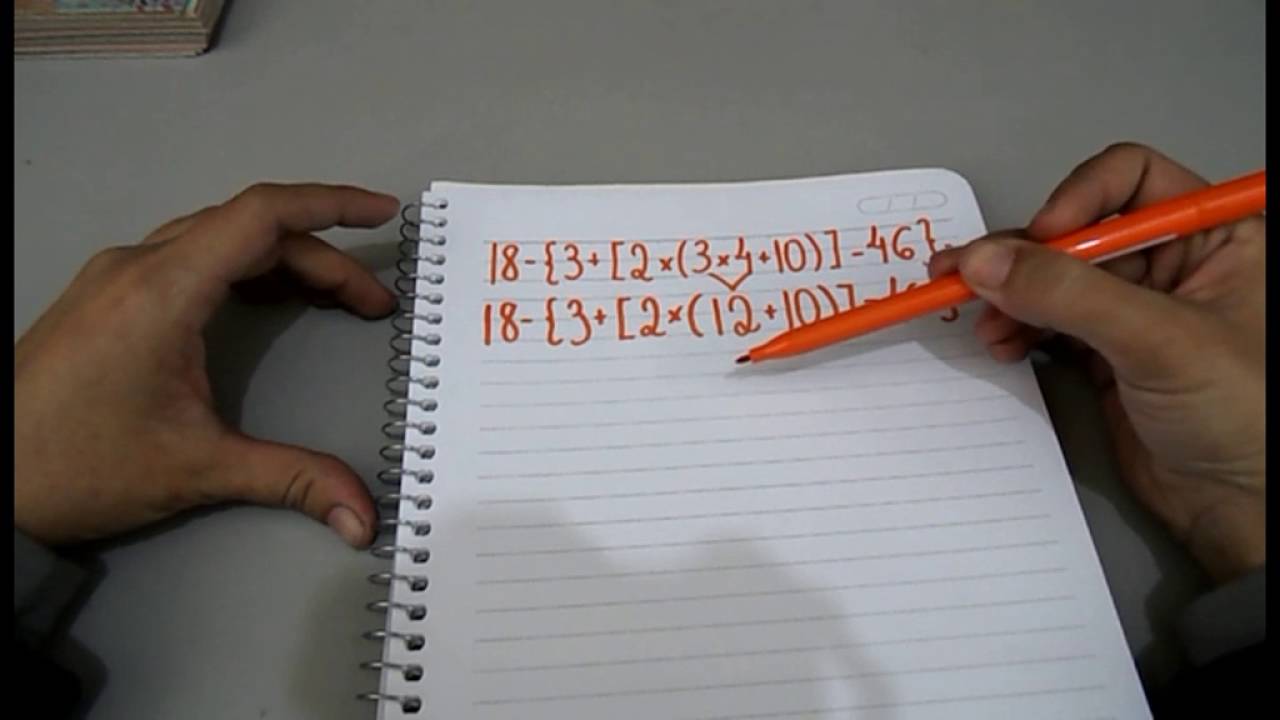 18-{3+[2×(3×4+10)]-46}
18-{3+[2×(12+10)]-